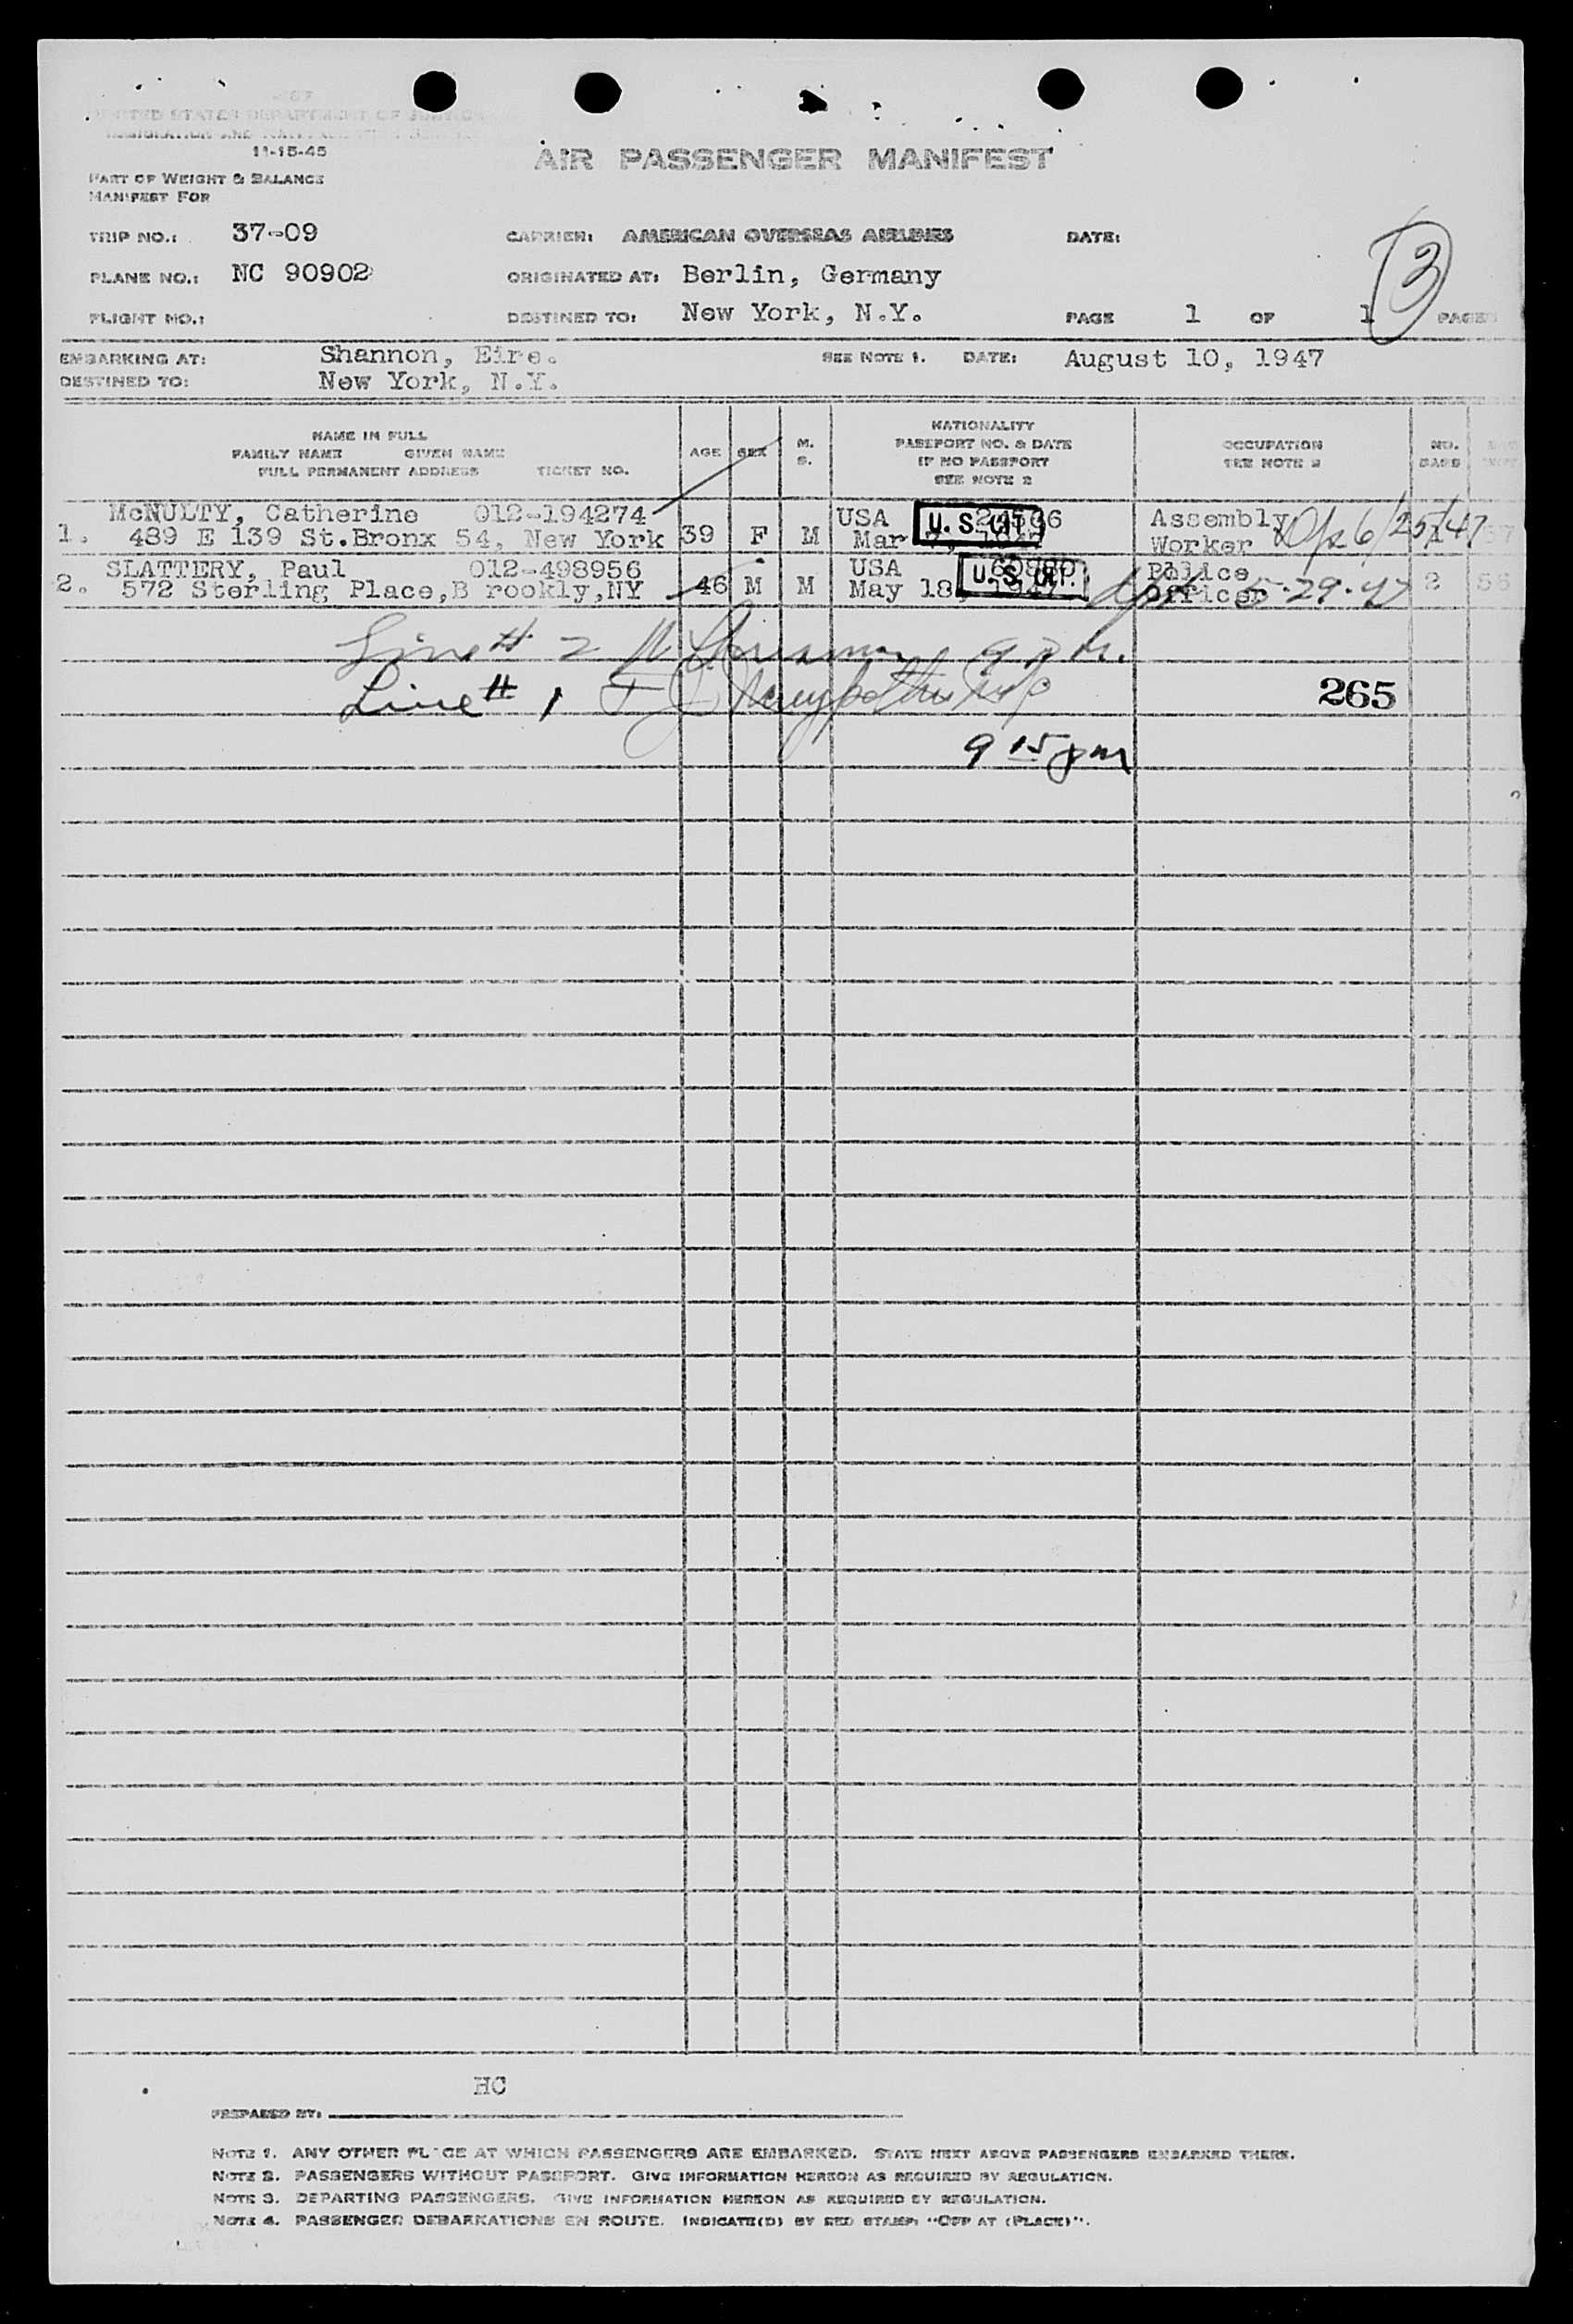 UNITED STATES DEPARTMENT OF JUSTICE
11-15-45
AIR PASSENGER MANIFEST
PART OF WEIGHT & BALANCE
MANIFEST FOR
TRIP NO.: 37-09 CARRIER: AMERICAN OVERSEAS AIRLINES DATE:
3
PLANE NO.: NC 90902 ORIGINATED AT: Berlin, Germany
FLIGHT NO.: DESTINED TO: New York, N.Y. PAGE 1 OF 1 PAGES
EMBARKING AT: Shannon, Eire. SEE NOTE 1. DATE: August 10, 1947
DESTINED TO: New York, N.Y.
NAME IN FULL
FAMILY NAME GIVEN NAME
FULL PERMANENT ADDRESS TICKET NO.
AGE
SEX
M.
S.
NATIONALITY
PASSPORT NO. & DATE
IF NO PASSPORT
SEE NOTE 2
OCCUPATION
SEE NOTE 2
NO.
BAGS
McNULTY, Catherine 012-194274 USA U.S. CIT. Assembly 6/25/47
1. 489 E 139 St.Bronx 54, New York 39 F M Mar Worker
SLATTERY, Paul 012-498956 USA U.S. CIT. Police
2. 572 Sterling Place,B rookly,NY 46 M M May 18, 1947 Officer 5-29-47 2 56
Line # 2 9 p.m.
Line # 1
265
9 15 pm
HC
PREPARED BY:
NOTE 1. ANY OTHER PLACE AT WHICH PASSENGERS ARE EMBARKED. STATE NEXT ABOVE PASSENGERS EMBARKED THERE.
NOTE 2. PASSENGERS WITHOUT PASSPORT. GIVE INFORMATION HEREON AS REQUIRED BY REGULATION.
NOTE 3. DEPARTING PASSENGERS. GIVE INFORMATION HEREON AS REQUIRED BY REGULATION.
NOTE 4. PASSENGER DEBARKATIONS EN ROUTE. INDICATE(D) BY RED STAMP: "OFF AT (PLACE)".